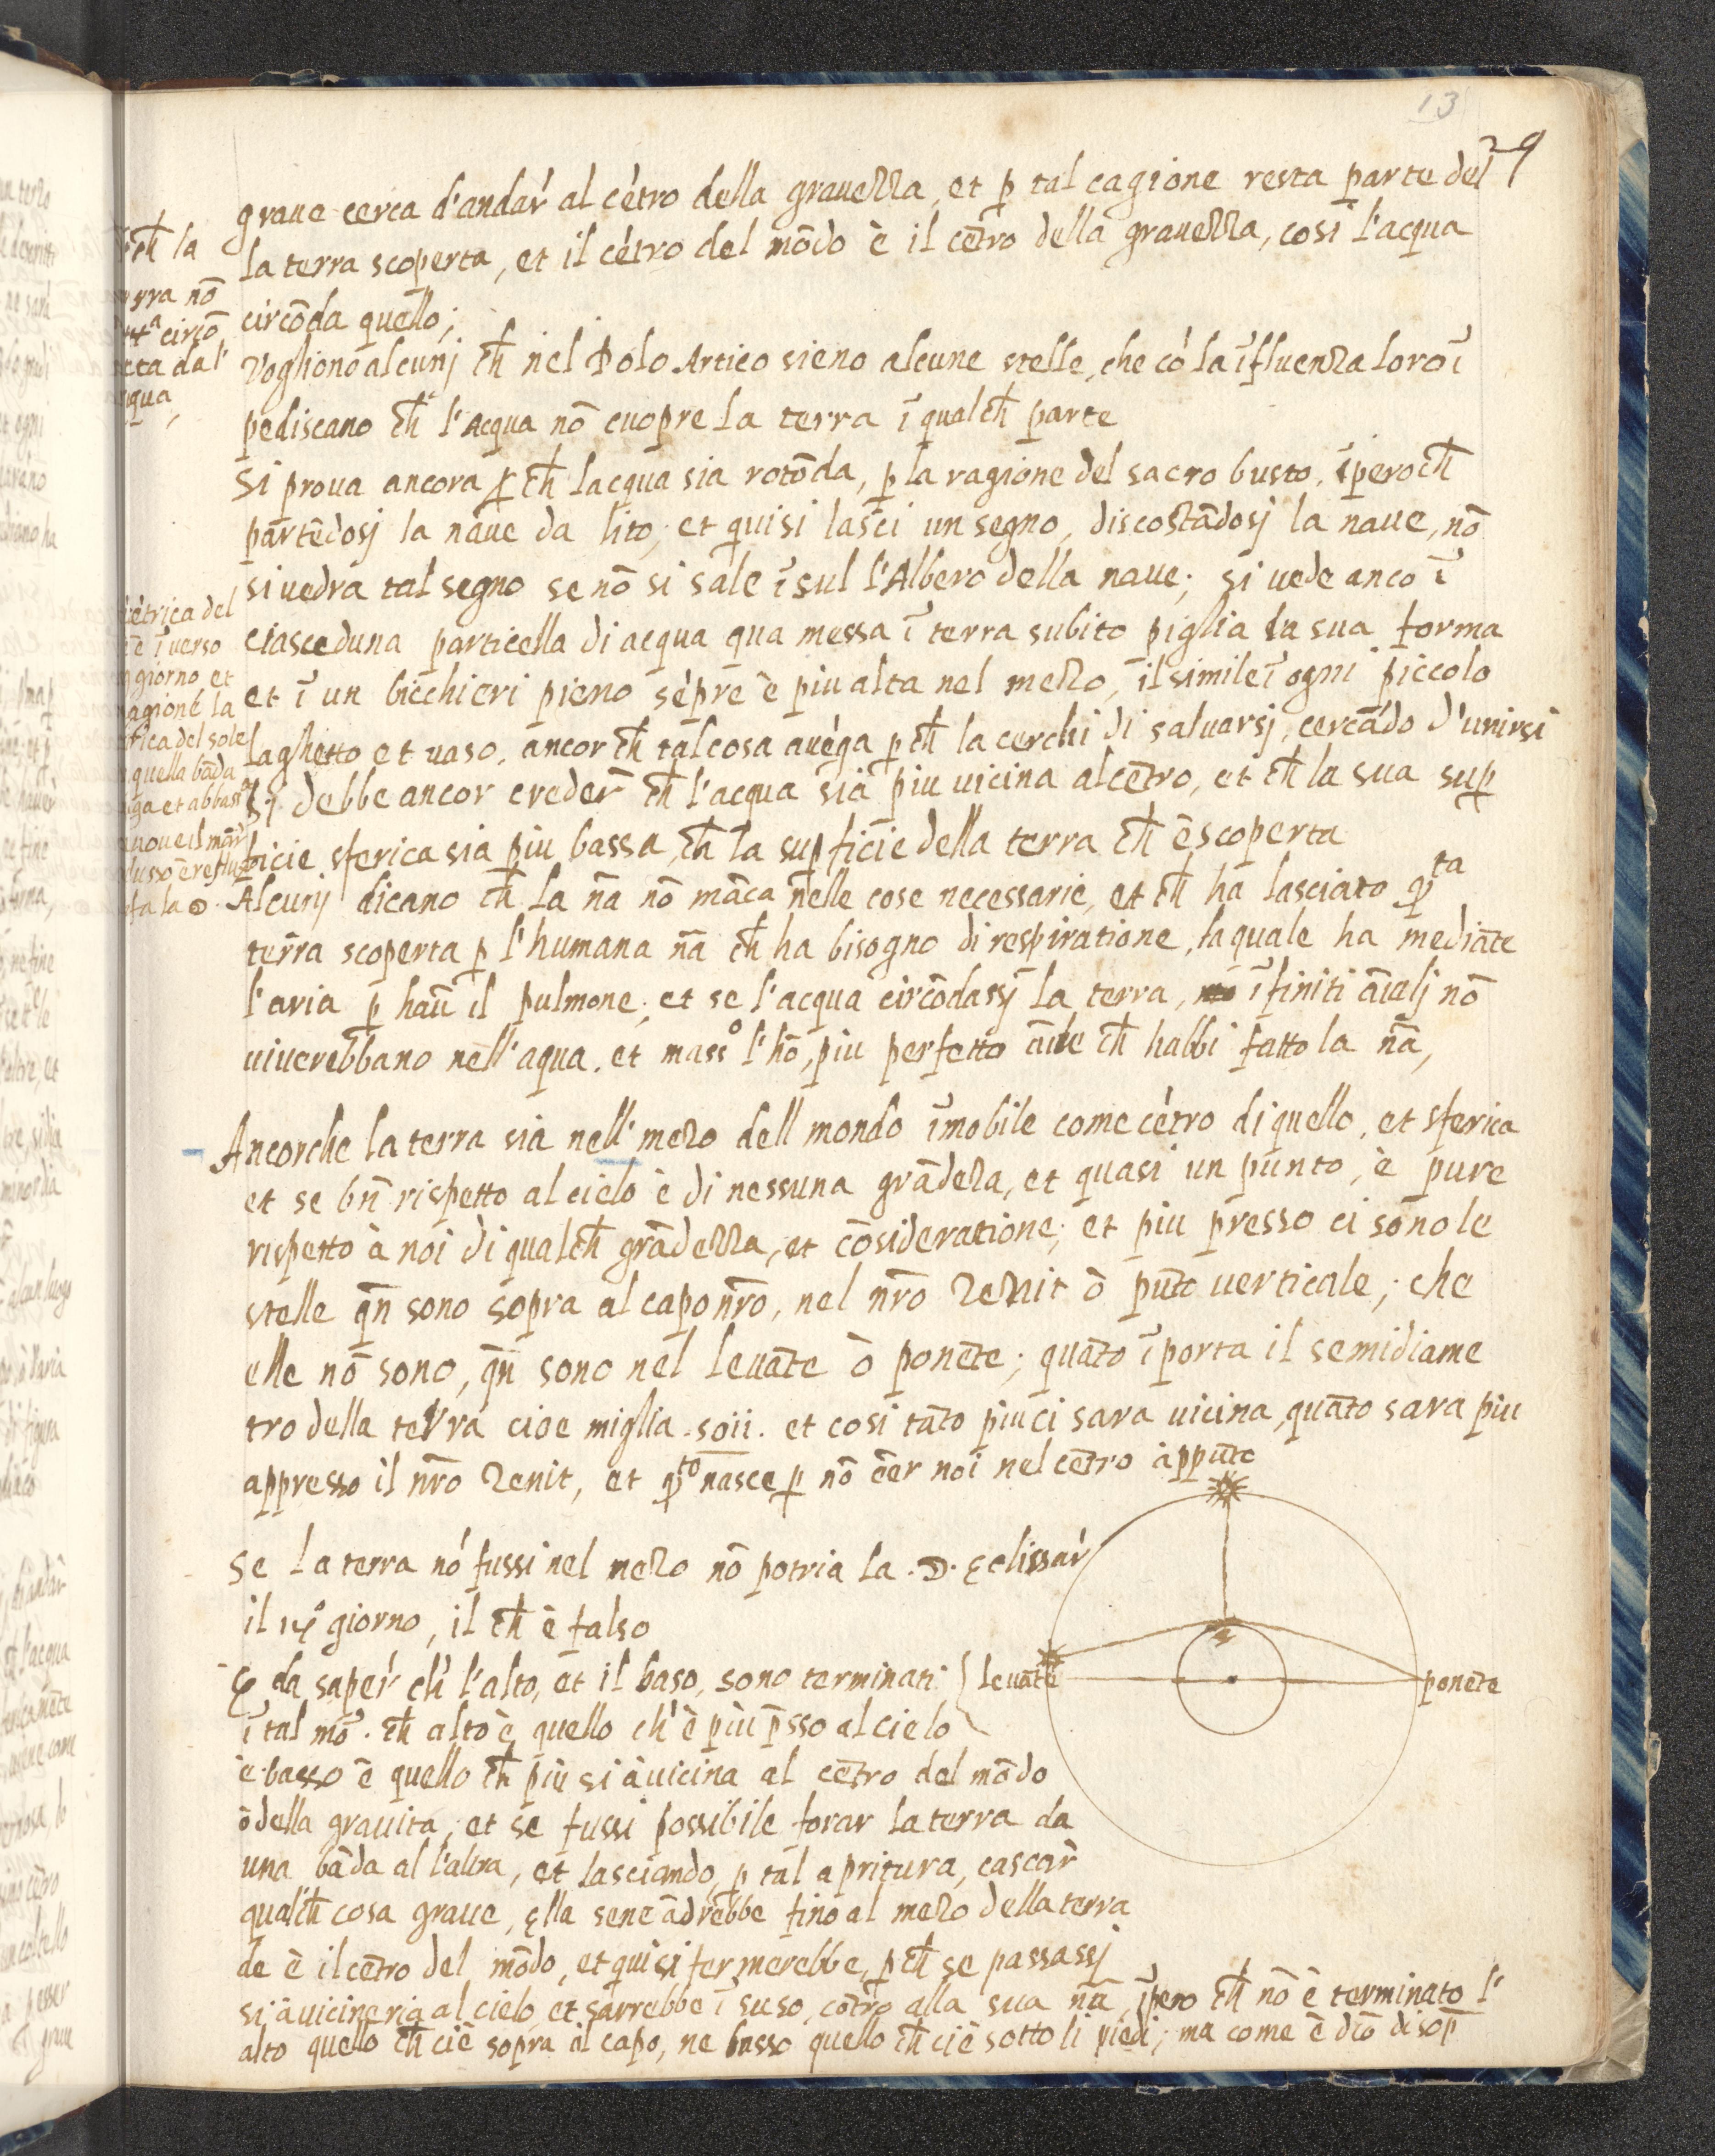 13
29
graue cerca d'andar̃ al cẽtro della grauezza, et p̱ tal cagione resta parte del
la terra scoperta, et il cẽtro del mõdo è il cẽtro della grauezza, cosi l'acqua
circõda quello;
Vogliono alcunj ch̃ nel Polo Artico sieno alcune stelle, che cõ la ĩfluenza loro ĩ
pediscano ch̃ l'Acqua nõ cuopre la terra ĩ qualch̃ parte
Si proua ancora p̱ch̃ lacqua sia rotõda, p̱ la ragione del sacro busto, ĩperoch̃
partẽdosj la naue da lito, et quisi lasci un segno, discostãdosj la naue, nõ
si uedra tal segno se nõ si sale ĩ sul l'Albero della naue; si uede anco ĩ
ciasceduna particella di acqua qua messa ĩ terra subito piglia la sua forma
et ĩ un bicchieri pieno sẽpre è piu alta nel mezo, il simile ĩ ogni piccolo
laghetto et uaso, ancor ch̃ tal cosa auẽga p̱ch̃ la cerchi di saluarsj, cercãdo d'unirsi
Si debbe ancor creder̃ ch̃ l'acqua sia piu uicina al cẽtro, et ch̃ la sua sup̱
ficie sferica sia piu bassa, ch̃ la sup̱ficie della terra ch̃ è scoperta
Alcunj dicano ch̃ la ña nõ mãca nelle cose necessarie, et ch̃ ha lasciato q̃ta
terra scoperta p̱ l'humana ña ch̃ ha bisogno di respiratione, la quale ha mediãte
l'aria p̱ hau̅ il pulmone; et se l'acqua circõdassj la terra, ĩfiniti ãialj nõ
uiuerebbano nell'aqua, et masso l'hõ, piu perfetto ãile ch̃ habbi fatto la ña,
Ancorche la terra sia nell' mezo dell mondo ĩmobile come cẽtro di quello, et sferica
et se bñ rispetto al cielo è di nessuna grãdeza, et quasi un punto, è pure
rispetto à noi di qualch̃ grãdezza, et cõsideratione; et piu presso ci sono le
stelle qñ sono sopra al capo ñro, nel ñro Zenit ò pũto uerticale; che
elle nõ sono, qñ sono nel leuãte ò ponẽte; quãto ĩporta il semidiame
tro della terra cioe miglia .soii. et cosi tãto piu ci sara uicina, quãto sara piu
appresso il ñro Zenit, et q̃to nasce p̱ nõ eẽr noi nel cẽtro àppũto
Se la terra nõ fussi nel mezo nõ potria la .☽. Eclissar̃
il 14o giorno, il ch̃ è falso
E da saper̃ ch̃ l'alto, et il baso, sono terminati
ĩ tal mõ. ch̃ alto è quello ch'è più p̃sso al cielo
è basso è quello ch̃ più si àuicina al cẽtro del mõdo
ò della grauita; et se fussi possibile forar la terra da
una bãda al l'altra, et lasciando, p̱ tal apritura, cascar̃
qualch̃ cosa graue, Ella sene ãdrebbe fino al mezo della terra
de è il cẽtro del mõdo, et quisi fermerebbe, p̱ch̃ se passassj
si àuicineria al cielo, et sarrebbe ĩ suso, cõtro alla sua ña, ĩpero ch̃ nõ è terminato l'
alto quello ch̃ ciè sopra il capo, ne basso quello ch̃ ciè sotto li piedi; ma come è dto disop̃
leuãte
ponẽte
ch̃ la
rra nõ
circõ
ta dal'
qua,
cẽtrica del
è ĩ uerso
giorno et
agione la
rica del sole
quella bãda
ga et abbas